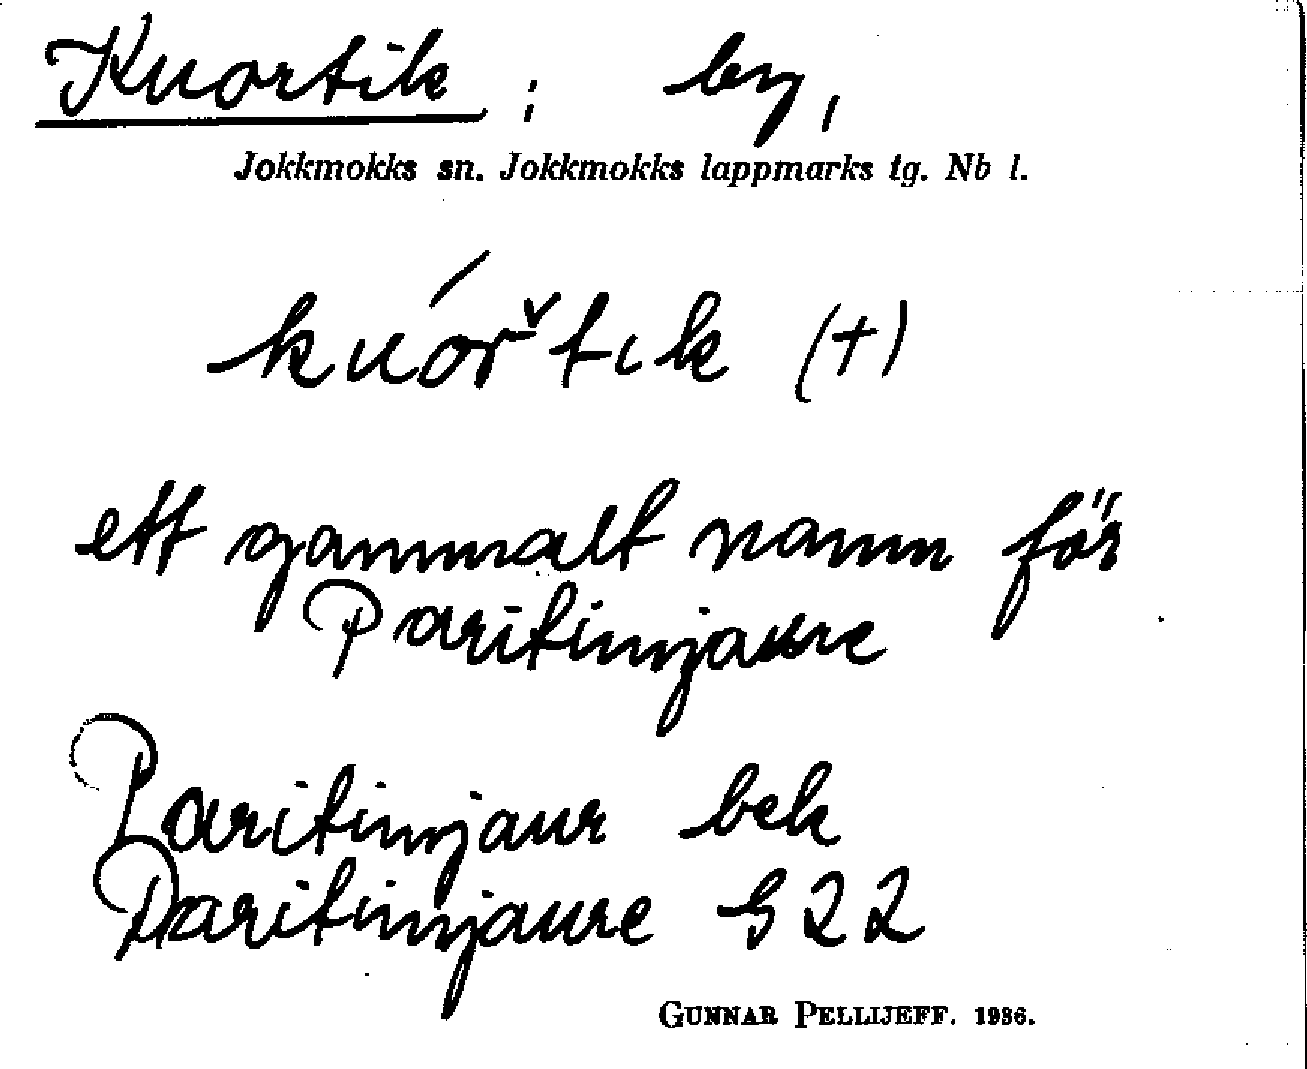 Kuortik ; by,
Jokkmokks sn. Jokkmokks lappmarks tg. Nb l.
kuórštık (+)
ett gammalt namn för
Paritimjaure
Paritimjaur bek
Paritimjaure G 22
GUNNAR PELLIJEFF. 1936.